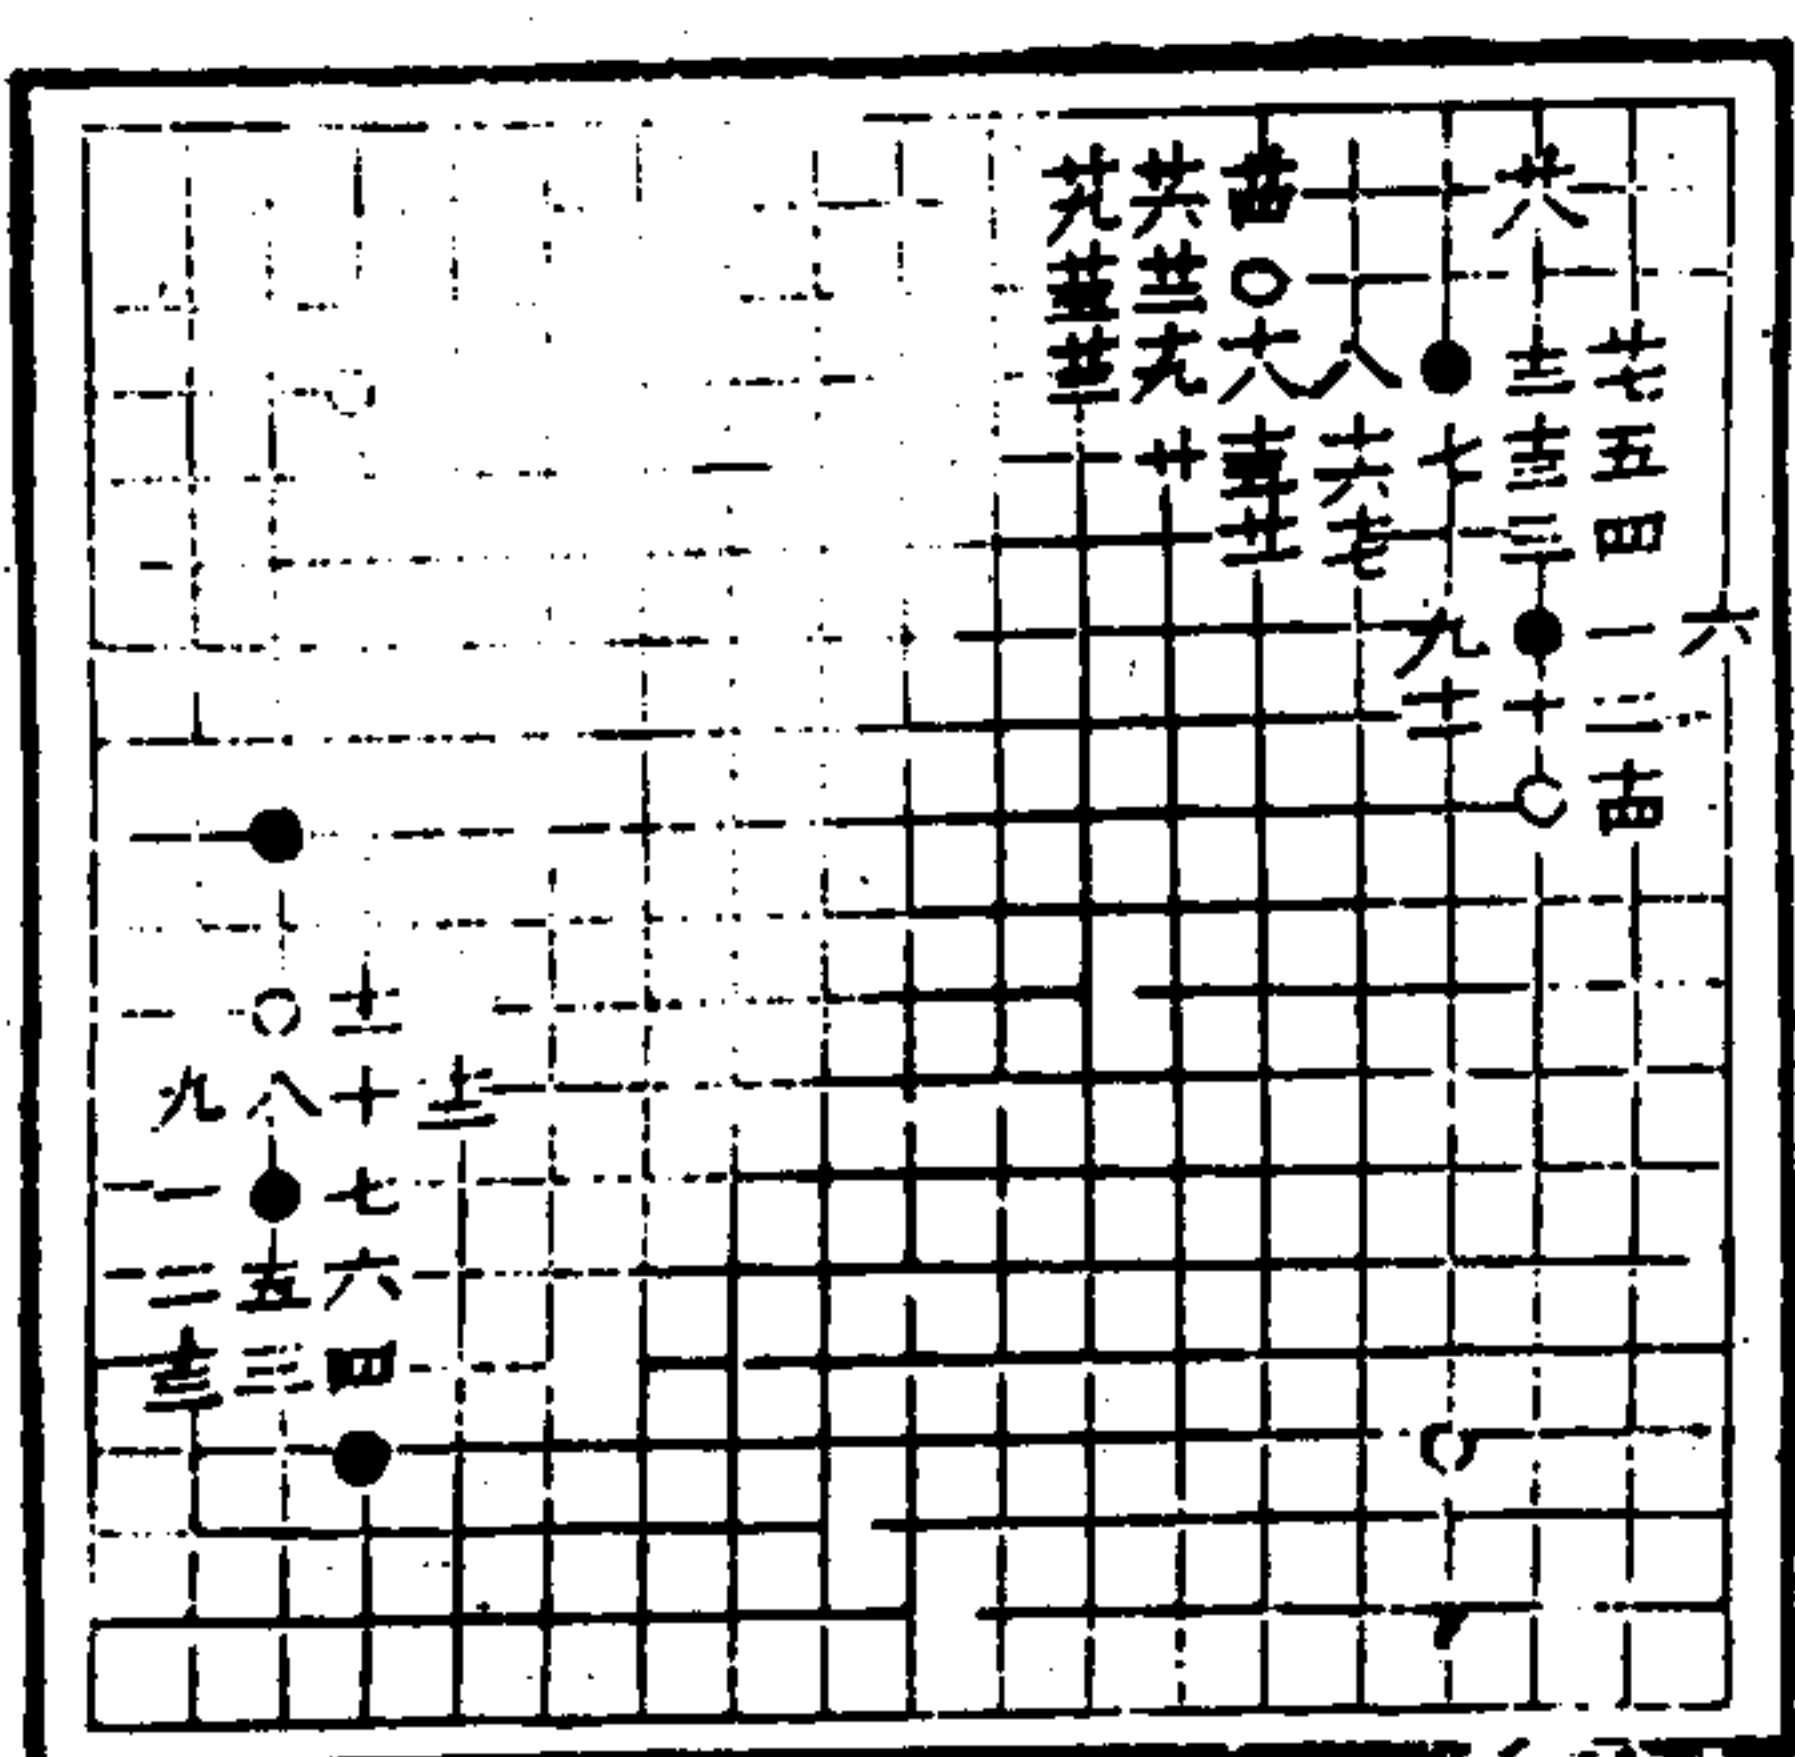 廿九 廿六 廿四 廿八
廿五 廿三
廿二 十九 十八 八 十二 廿七
廿 十五 十六 七 十三 五
廿一 十七 三 四
九 一 六
十一 十 二
十四
十一
九 八 十 十二
一 七
二 五 六
十三 三 四